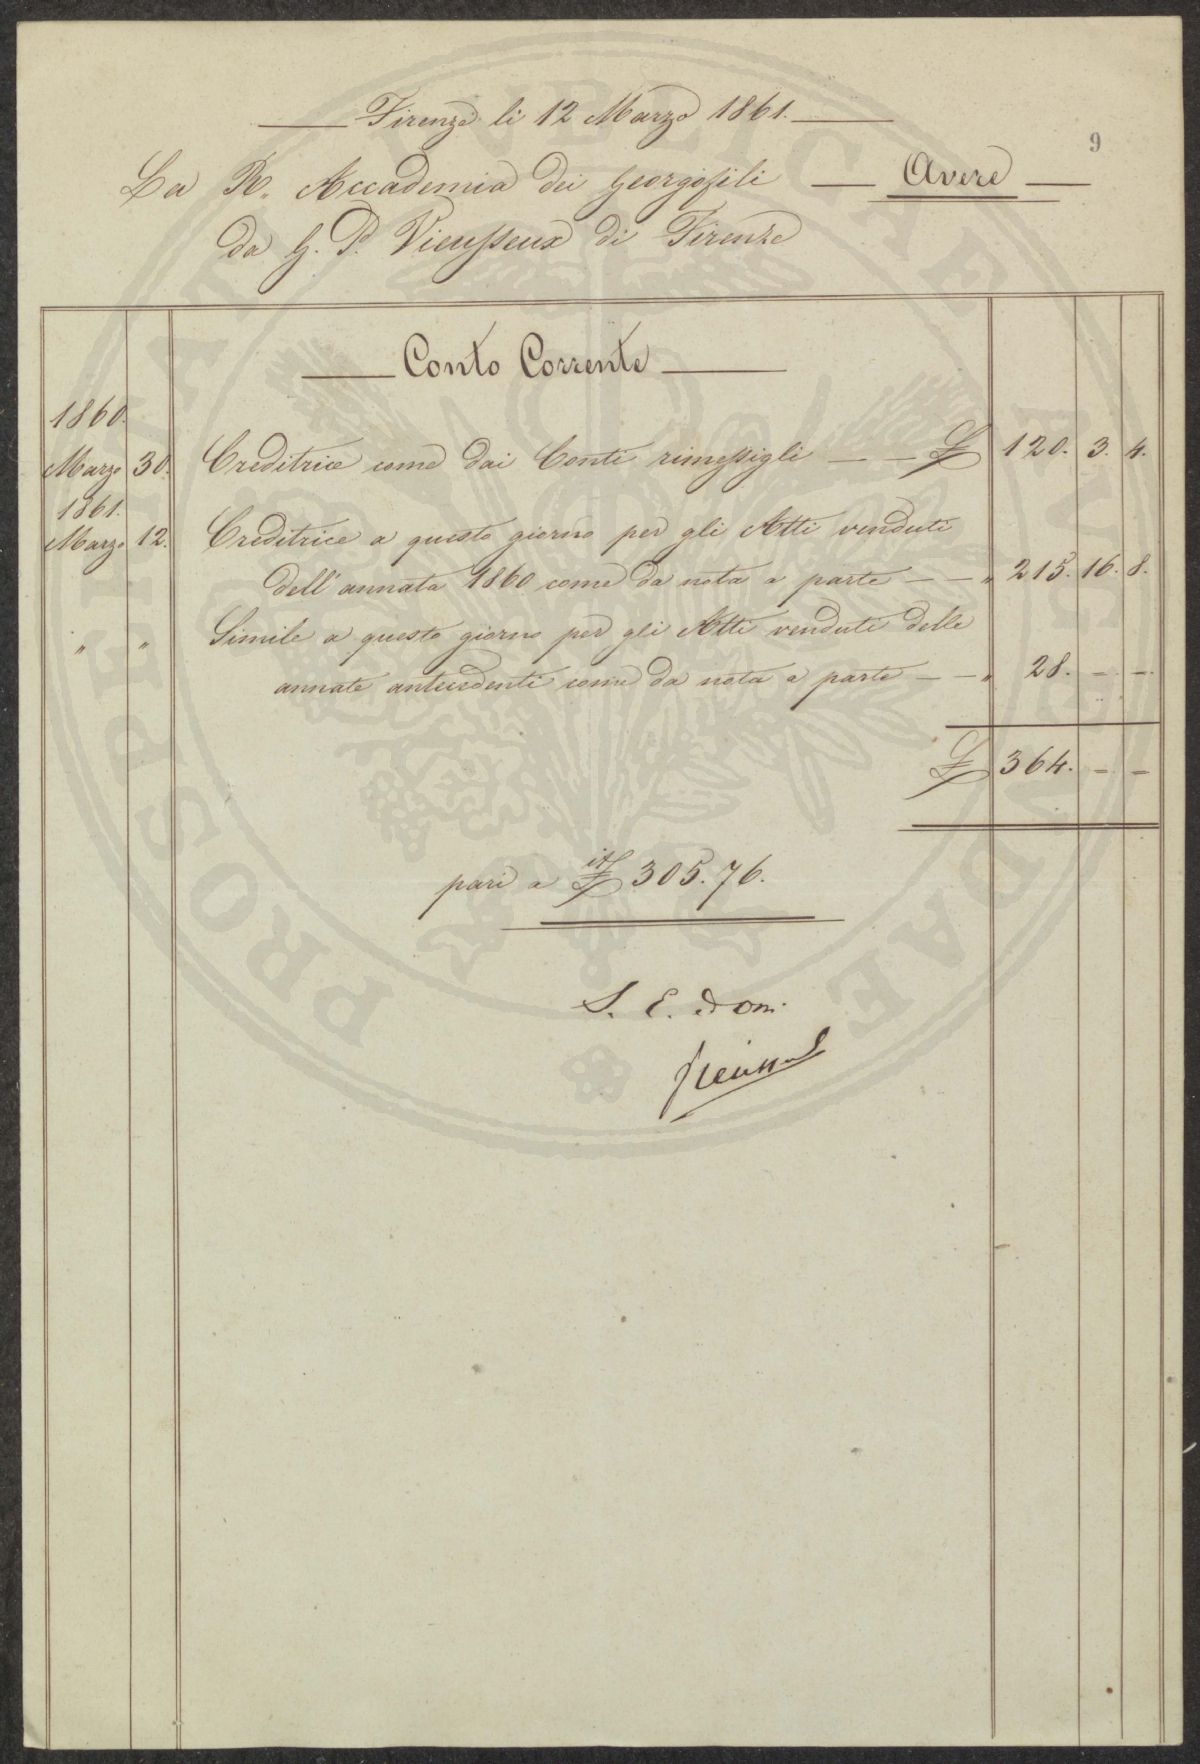 Firenze li 12 Marzo 1861.
9
La R. Accademia dei Georgofili — Avere
da G. P. Vieusseux di Firenze
Conto Corrente
1860.
Marzo 30. Creditrice come dai Conti rimessigli — — £ 120. 3. 4.
1861.
Marzo 12. Creditrice a questo giorno per gli Atti venduti
dell'annata 1860 come da nota a parte — — " 215. 16. 8.
" " Simile a questo giorno per gli Atti venduti delle
annate antecedenti come da nota a parte — — " 28. — —
£ 364. — —
pari a it£ 305.76.
S. E. ed om.
Vieusseux
PROSPERITATI PUBLICAE AUGENDAE